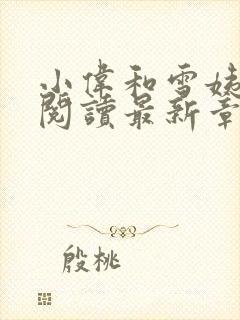 小偉和雪姨
閱讀最新章
殷桃